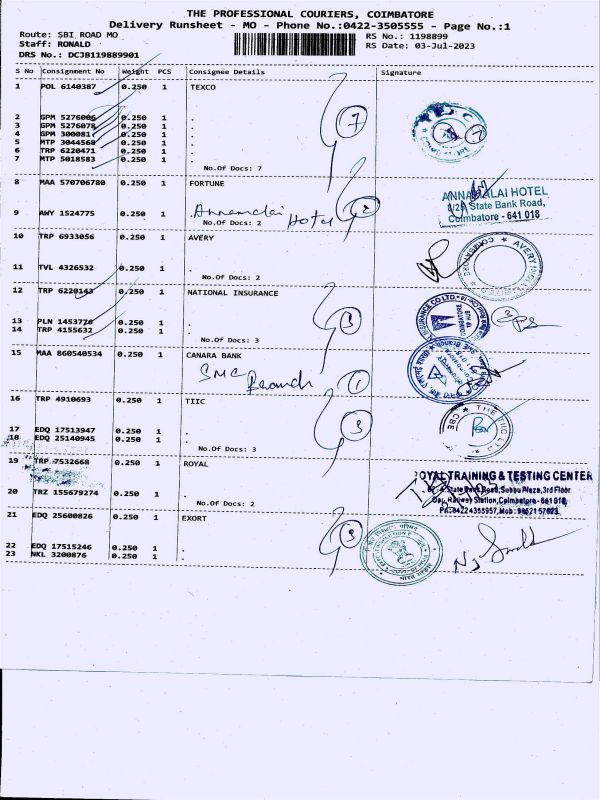 THE PROFESSIONAL COURIERS, COIMBATORE
Delivery Runsheet - MO - Phone No.:0422-3505555 - Page No.:1
Route: SBI ROAD MO
RS No.: 1198899
Staff: RONALD
RS Date: 03-Jul-2023
DRS No.: DCJB119889901
S No Consignment No Weight PCS Consignee Details Signature
1 POL 6140387 0.250 1 TEXCO
2 GPM 5276006 0.250 1 .
3 GPM 5276078 0.250 1 .
4 GPM 300081 0.250 1 .
5 MTP 3044568 0.250 1 .
6 TRP 6220471 0.250 1 .
7 MTP 5018583 0.250 1 .
7
No.Of Docs: 7
8 MAA 570706780 0.250 1 FORTUNE
ANNAMALAI HOTEL
State Bank Road,
Coimbatore - 641 018
9 AWY 1524775 0.250 1 . Annamalai Hotel 2
No.Of Docs: 2
10 TRP 6933056 0.250 1 AVERY
11 TVL 4326532 0.250 1 .
No.Of Docs: 2
12 TRP 6220143 0.250 1 NATIONAL INSURANCE
13 PLN 1453776 0.250 1 .
14 TRP 4155632 0.250 1 .
3
No.Of Docs: 3
15 MAA 860540534 0.250 1 CANARA BANK
SME Branch 1
16 TRP 4910693 0.250 1 TIIC
17 EDQ 17513947 0.250 1 .
18 EDQ 25140945 0.250 1 .
3
No.Of Docs: 3
19 TRP 7532668 0.250 1 ROYAL
ROYAL TRAINING & TESTING CENTER
State Bank Road, Subbu Plaza, 3rd Floor
Railway Station, Coimbatore - 641 018
20 TRZ 155679274 0.250 1 .
No.Of Docs: 2
21 EDQ 25600826 0.250 1 EXORT
3
22 EDQ 17515246 0.250 1 .
23 NKL 3200876 0.250 1 .